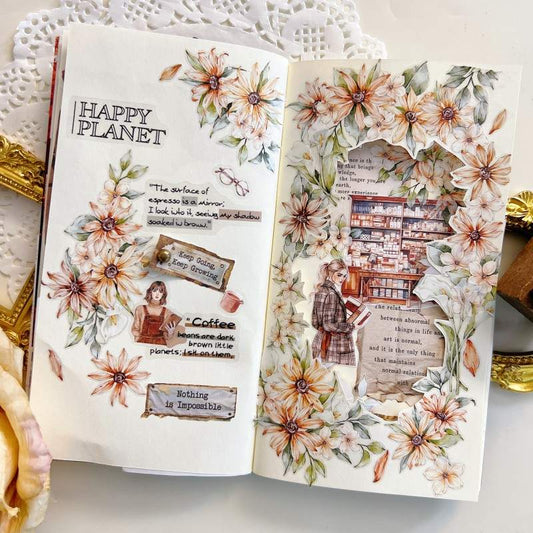 HAPPY
PLANET
"The surface of
espresso is a mirror;
I look into it, seeing my shadow
soaked in brown."
Keep Going,
Keep Growing.
"Coffee
beans are dark
brown little
planets; I sit on them."
Nothing
is Impossible
that brings
the longer you are
earth,
more experience
the relat
between abnormal
things in life
art is normal,
and it is the only thing
that maintains
normal relations
with